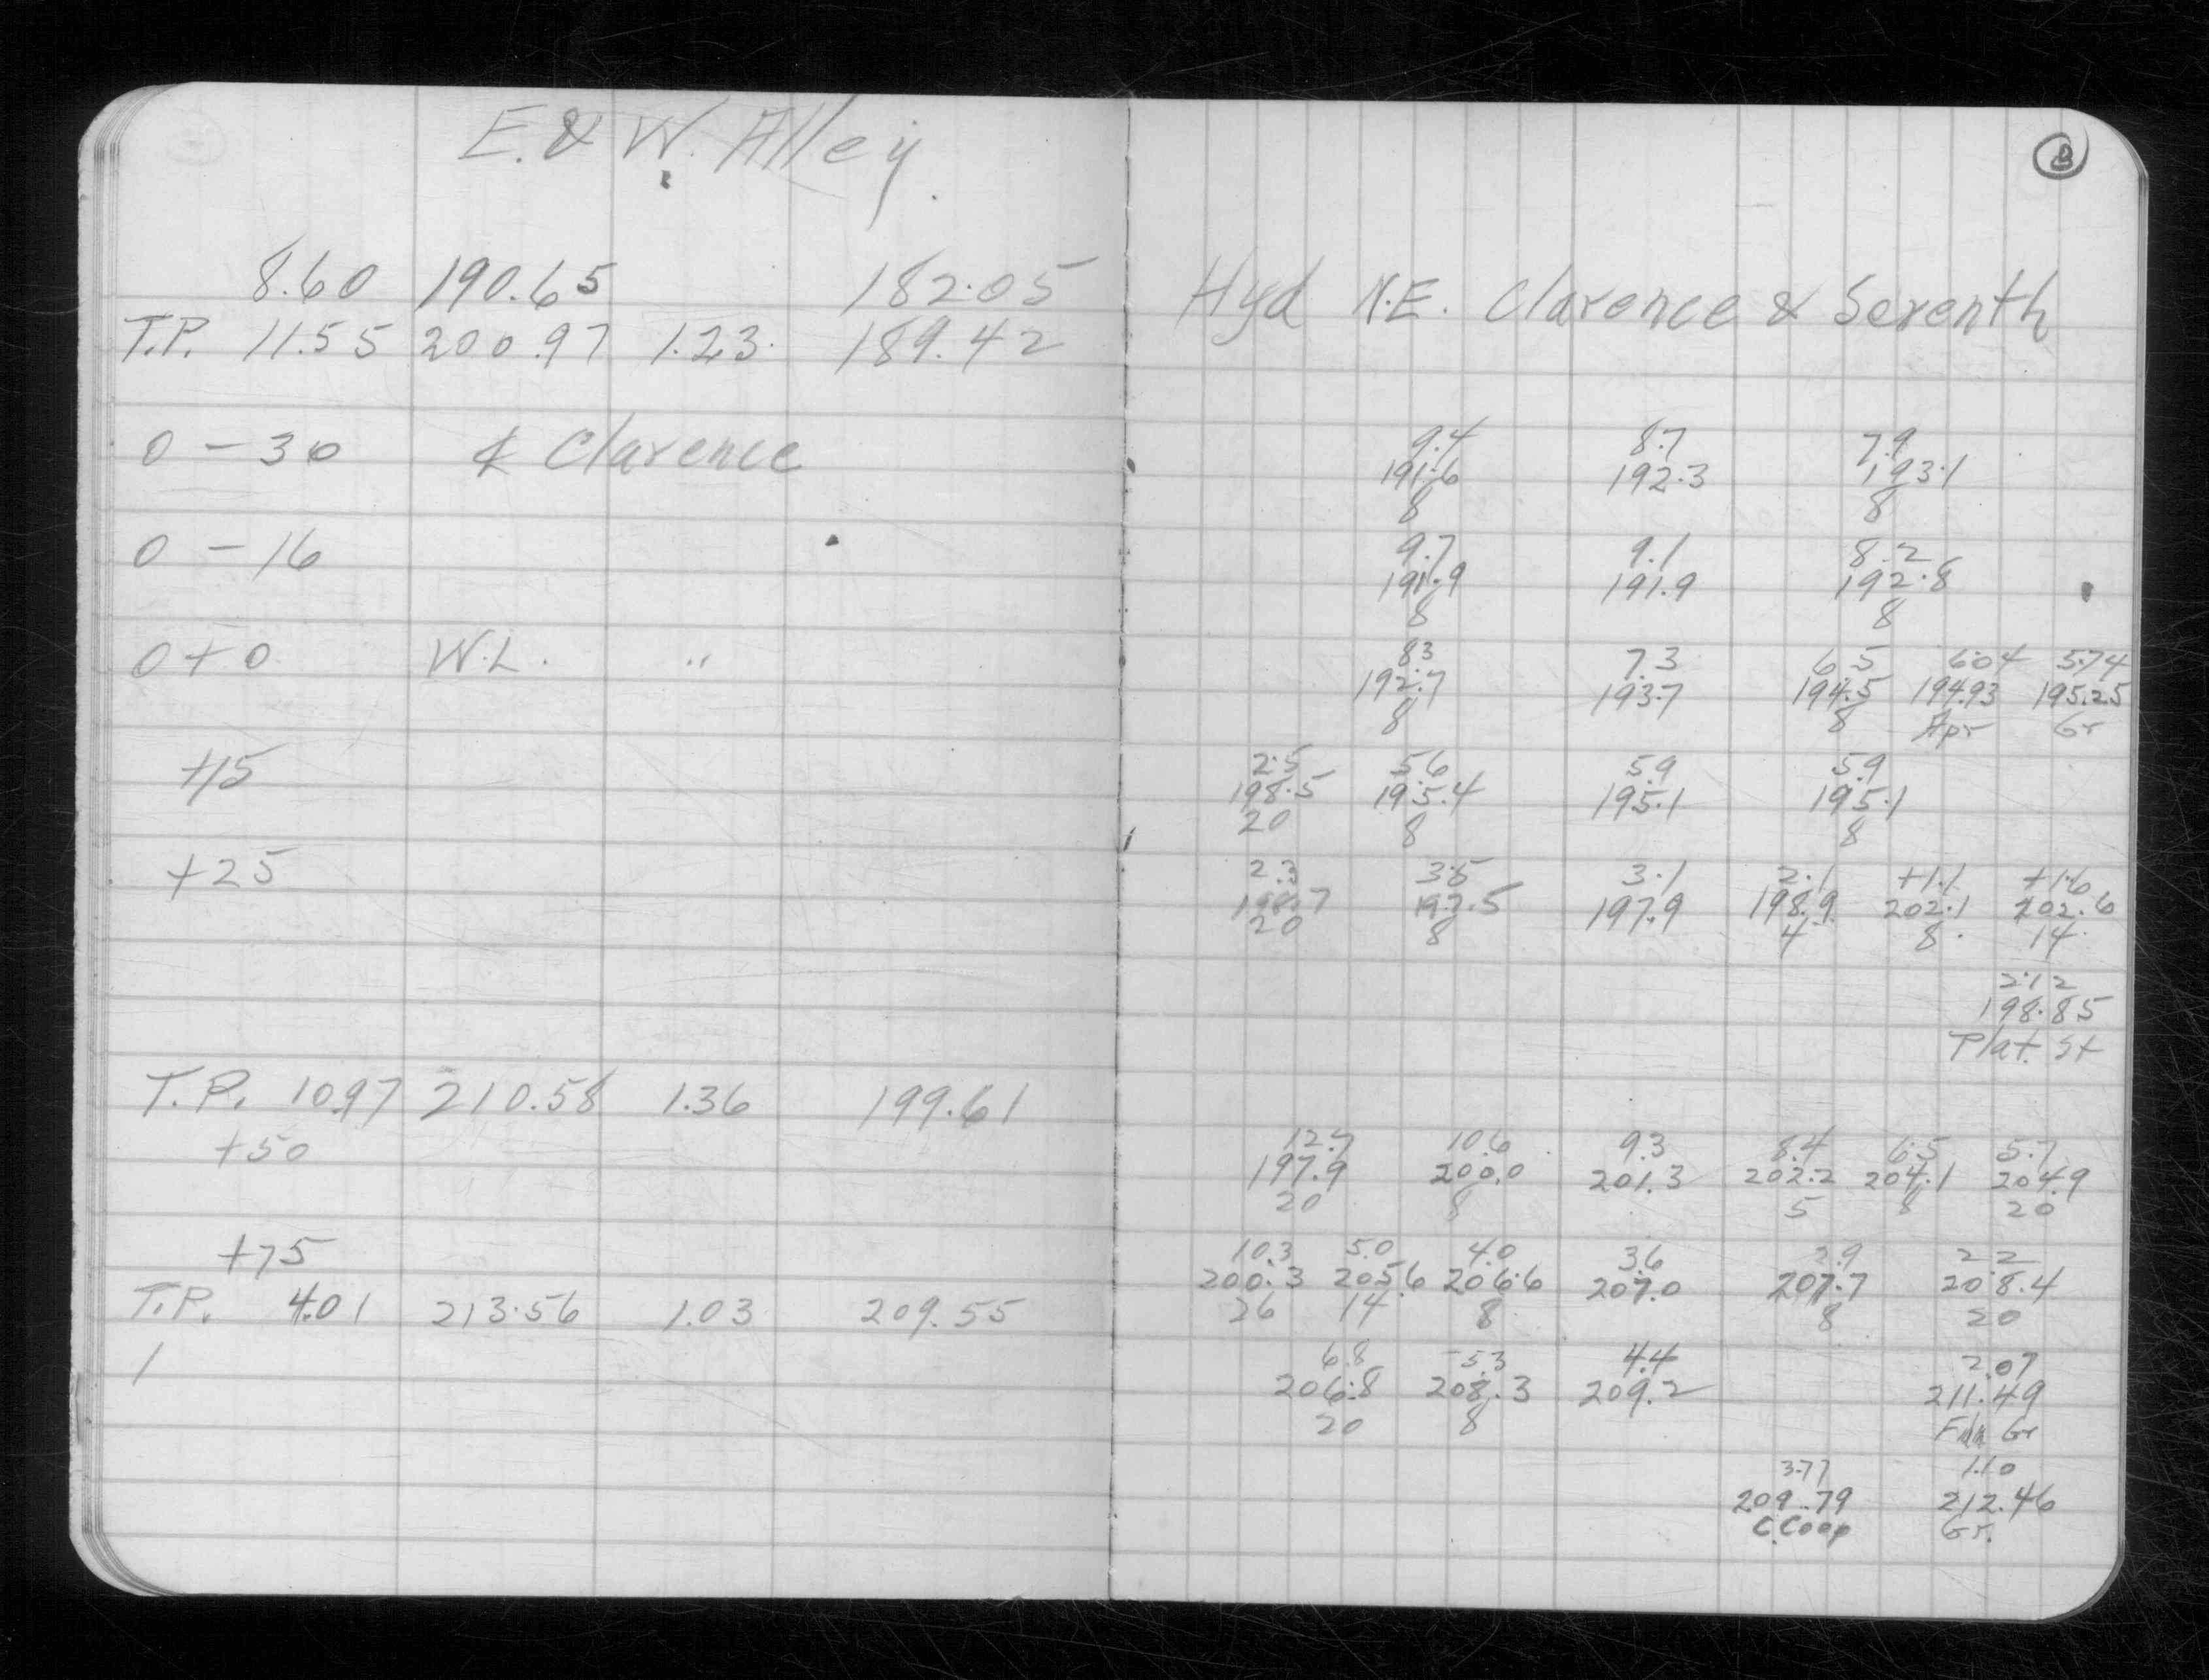 E. & W. Alley.
8.60 190.65 182.05
T.P. 11.55 200.97 1.23 189.42
0 - 30 ȼ Clarence
0 - 16
0 + 0 W.L. "
+15
+25
T.P. 10.97 210.58 1.36 199.61
+50
+75
T.P. 4.01 213.56 1.03 209.55
1
Hyd N.E. Clarence & Seventh
9.4 8.7 7.9
191.6 192.3 193.1
8 8
9.7 9.1 8.2
191.9 191.9 192.8
8 8
8.3 7.3 6.5 6.04 5.74
192.7 193.7 194.5 194.93 195.25
8 8 Apr Gr
2.5 5.6 5.9 5.9
198.5 195.4 195.1 195.1
20 8 8
2.3 3.5 3.1 2.1 +1.1 +1.6
198.7 197.5 197.9 198.9 202.1 202.6
20 8 4 8 14
2.12
198.85
Plat. St
12.7 10.6 9.3 8.4 6.5 5.7
197.9 200.0 201.3 202.2 204.1 204.9
20 8 5 8 20
10.3 5.0 4.0 3.6 2.9 2.2
200.3 205.6 206.6 207.0 207.7 208.4
26 14 8 8 20
6.8 5.3 4.4 2.07
206.8 208.3 209.2 211.49
20 8 Gr
3.77 1.10
209.79 212.46
C.Coop Gr.